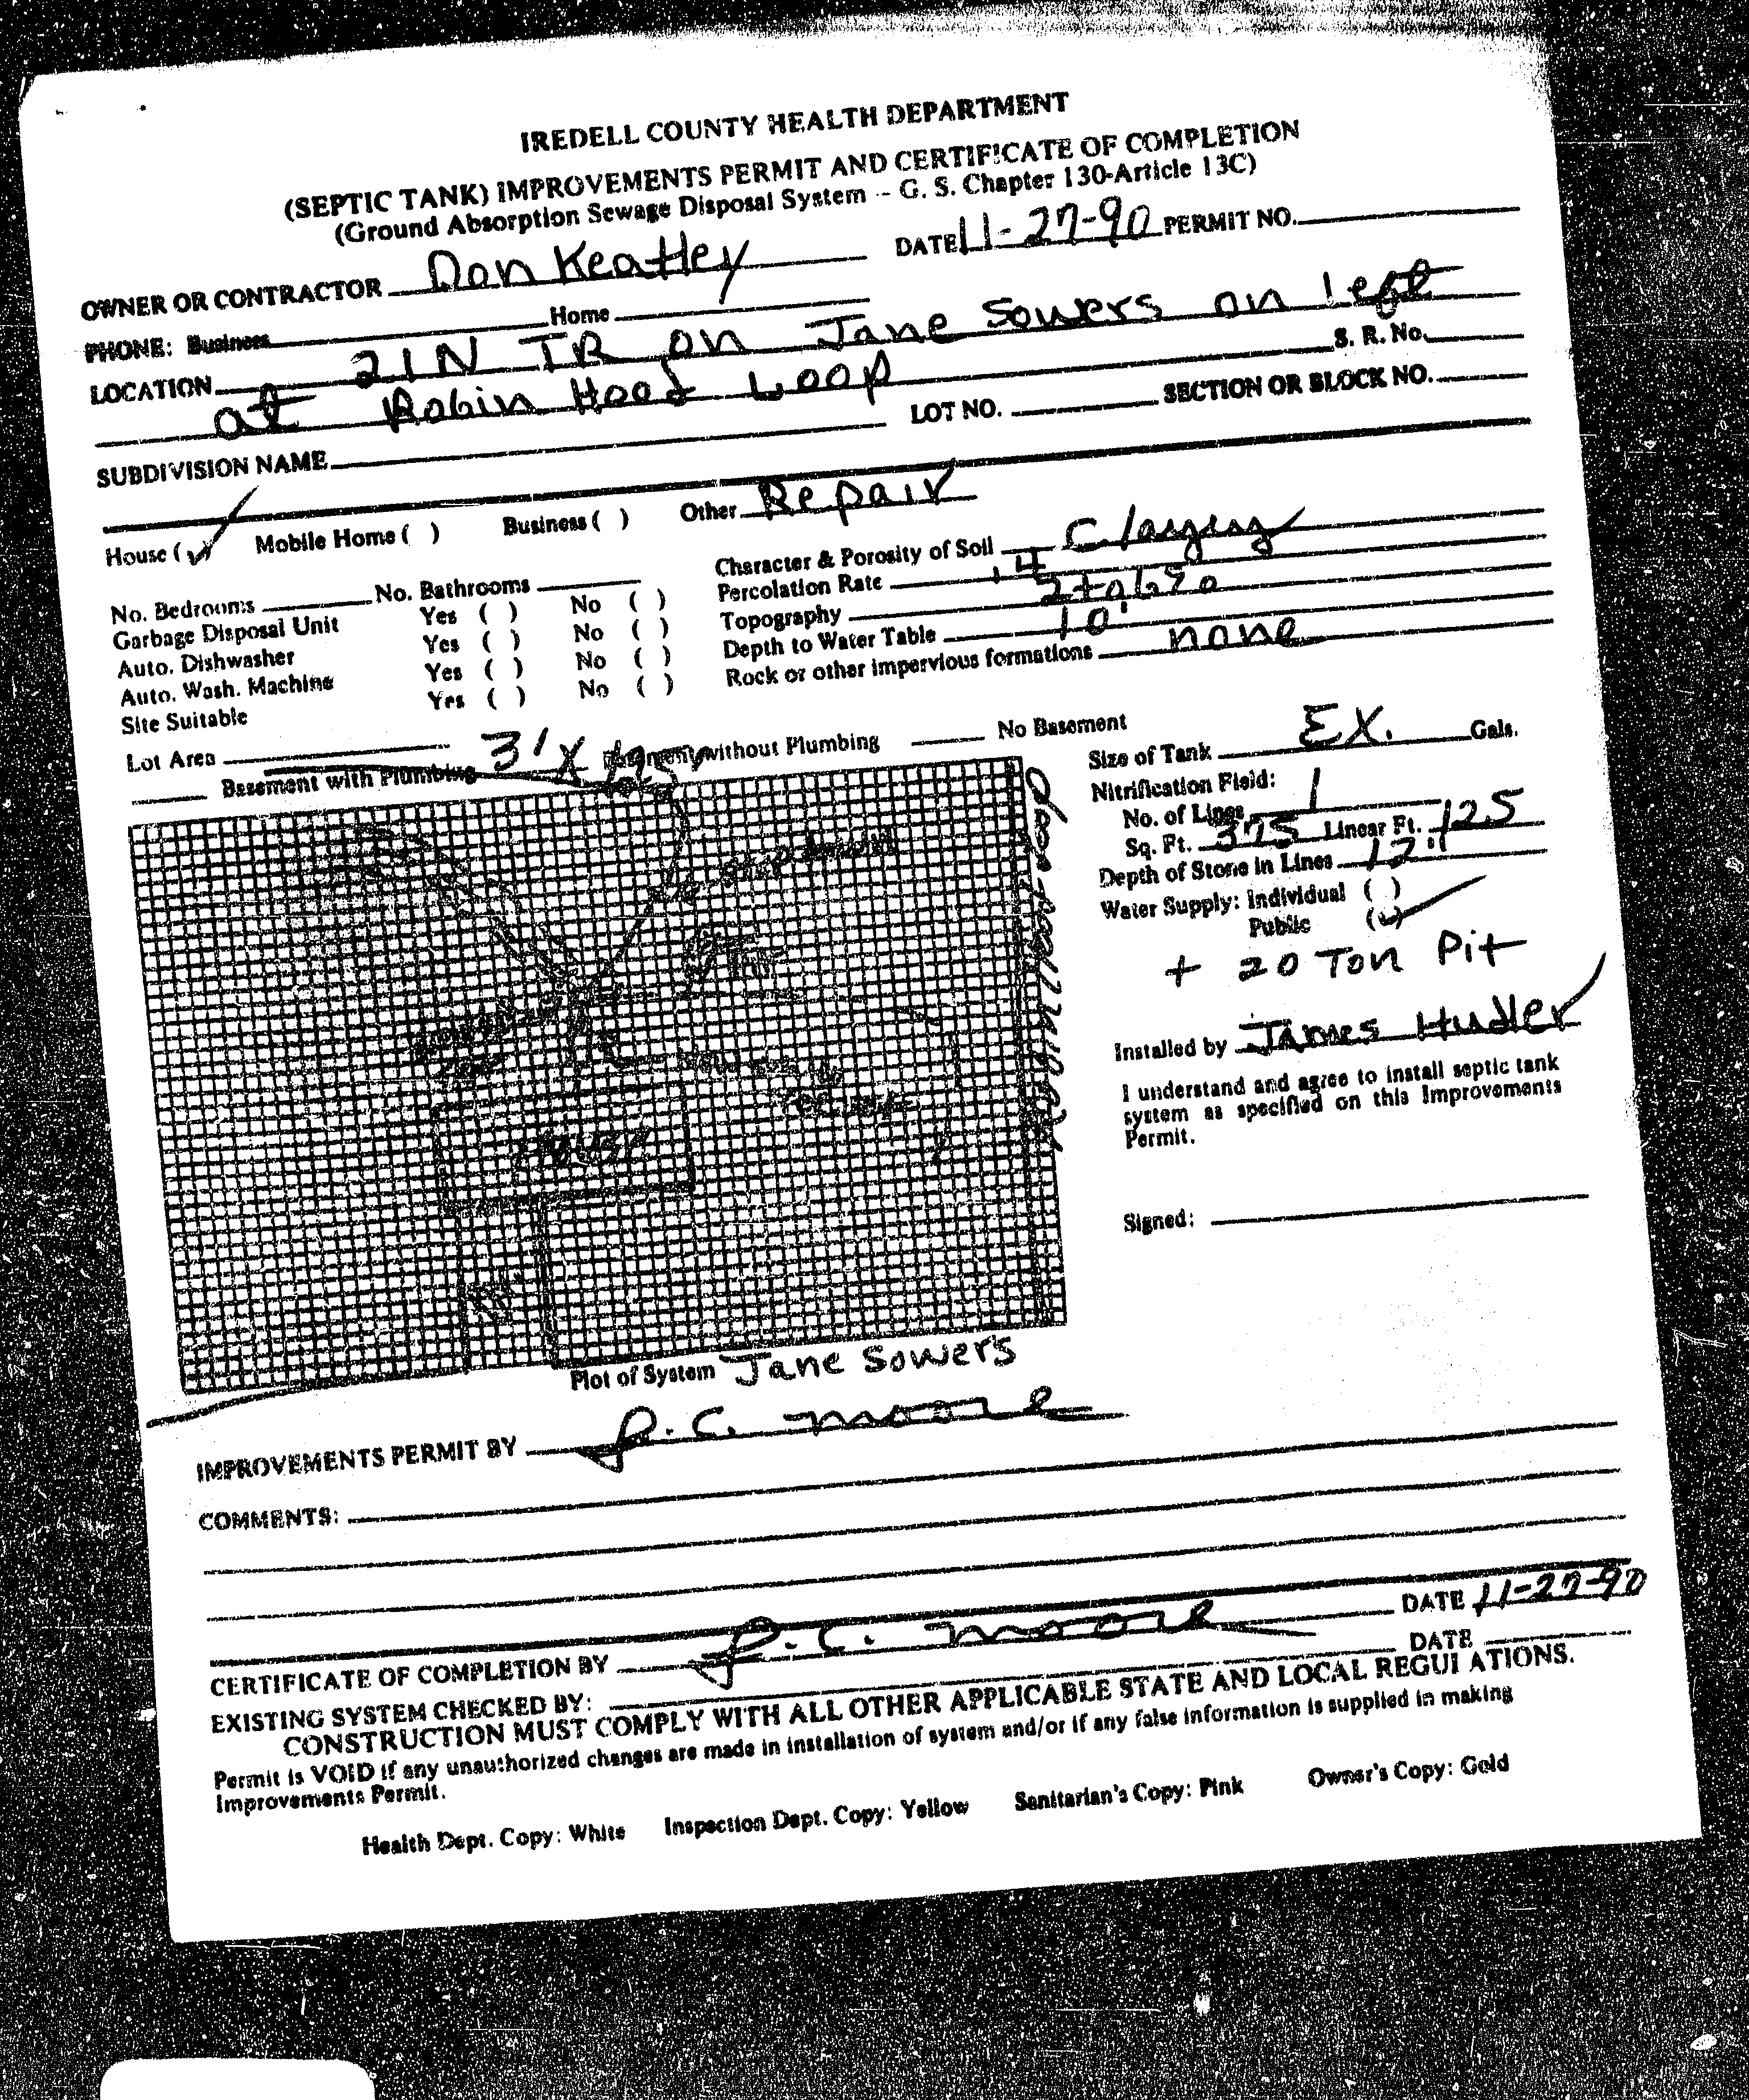 IREDELL COUNTY HEALTH DEPARTMENT
(SEPTIC TANK) IMPROVEMENTS PERMIT AND CERTIFICATE OF COMPLETION
(Ground Absorption Sewage Disposal System -- G. S. Chapter 130-Article 13C)
OWNER OR CONTRACTOR Don Keatley DATE 11-27-90 PERMIT NO.
PHONE: Business Home
LOCATION 21N TR on Jane Sowers on left S. R. No.
at Robin Hood Loop
SUBDIVISION NAME LOT NO. SECTION OR BLOCK NO.
House (✓) Mobile Home ( ) Business ( ) Other Repair
No. Bedrooms No. Bathrooms
Garbage Disposal Unit Yes ( ) No ( )
Auto. Dishwasher Yes ( ) No ( )
Auto. Wash. Machine Yes ( ) No ( )
Site Suitable Yes ( ) No ( )
Character & Porosity of Soil Clayey
Percolation Rate .4
Topography 2 to 6%
Depth to Water Table 10'
Rock or other impervious formations none
Lot Area
Basement with Plumbing Basement without Plumbing No Basement
3' X 125'
House
Size of Tank EX. Gals.
Nitrification Field:
No. of Lines 1
Sq. Ft. 375 Linear Ft. 125
Depth of Stone in Lines 12"
Water Supply: Individual ( )
Public (✓)
+ 20 Ton Pit
Installed by James Hudler
I understand and agree to install septic tank
system as specified on this Improvements
Permit.
Signed:
Plot of System Jane Sowers
IMPROVEMENTS PERMIT BY J. C. Moore
COMMENTS:
CERTIFICATE OF COMPLETION BY J. C. Moore DATE 11-27-90
EXISTING SYSTEM CHECKED BY: DATE
CONSTRUCTION MUST COMPLY WITH ALL OTHER APPLICABLE STATE AND LOCAL REGULATIONS.
Permit is VOID if any unauthorized changes are made in installation of system and/or if any false information is supplied in making
Improvements Permit.
Health Dept. Copy: White Inspection Dept. Copy: Yellow Sanitarian's Copy: Pink Owner's Copy: Gold